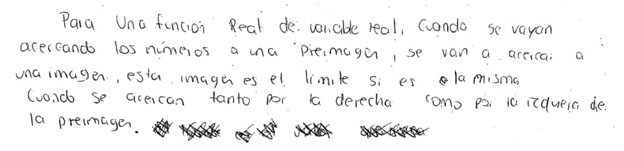 Para Una función Real de variable real, Cuando se vayan
acercando los números a una Preimagen, se van a acercar a
una imagen, esta imagen es el limite si es la misma
Cuando se acercan tanto por la derecha como por la izquiera de
la preimagen.